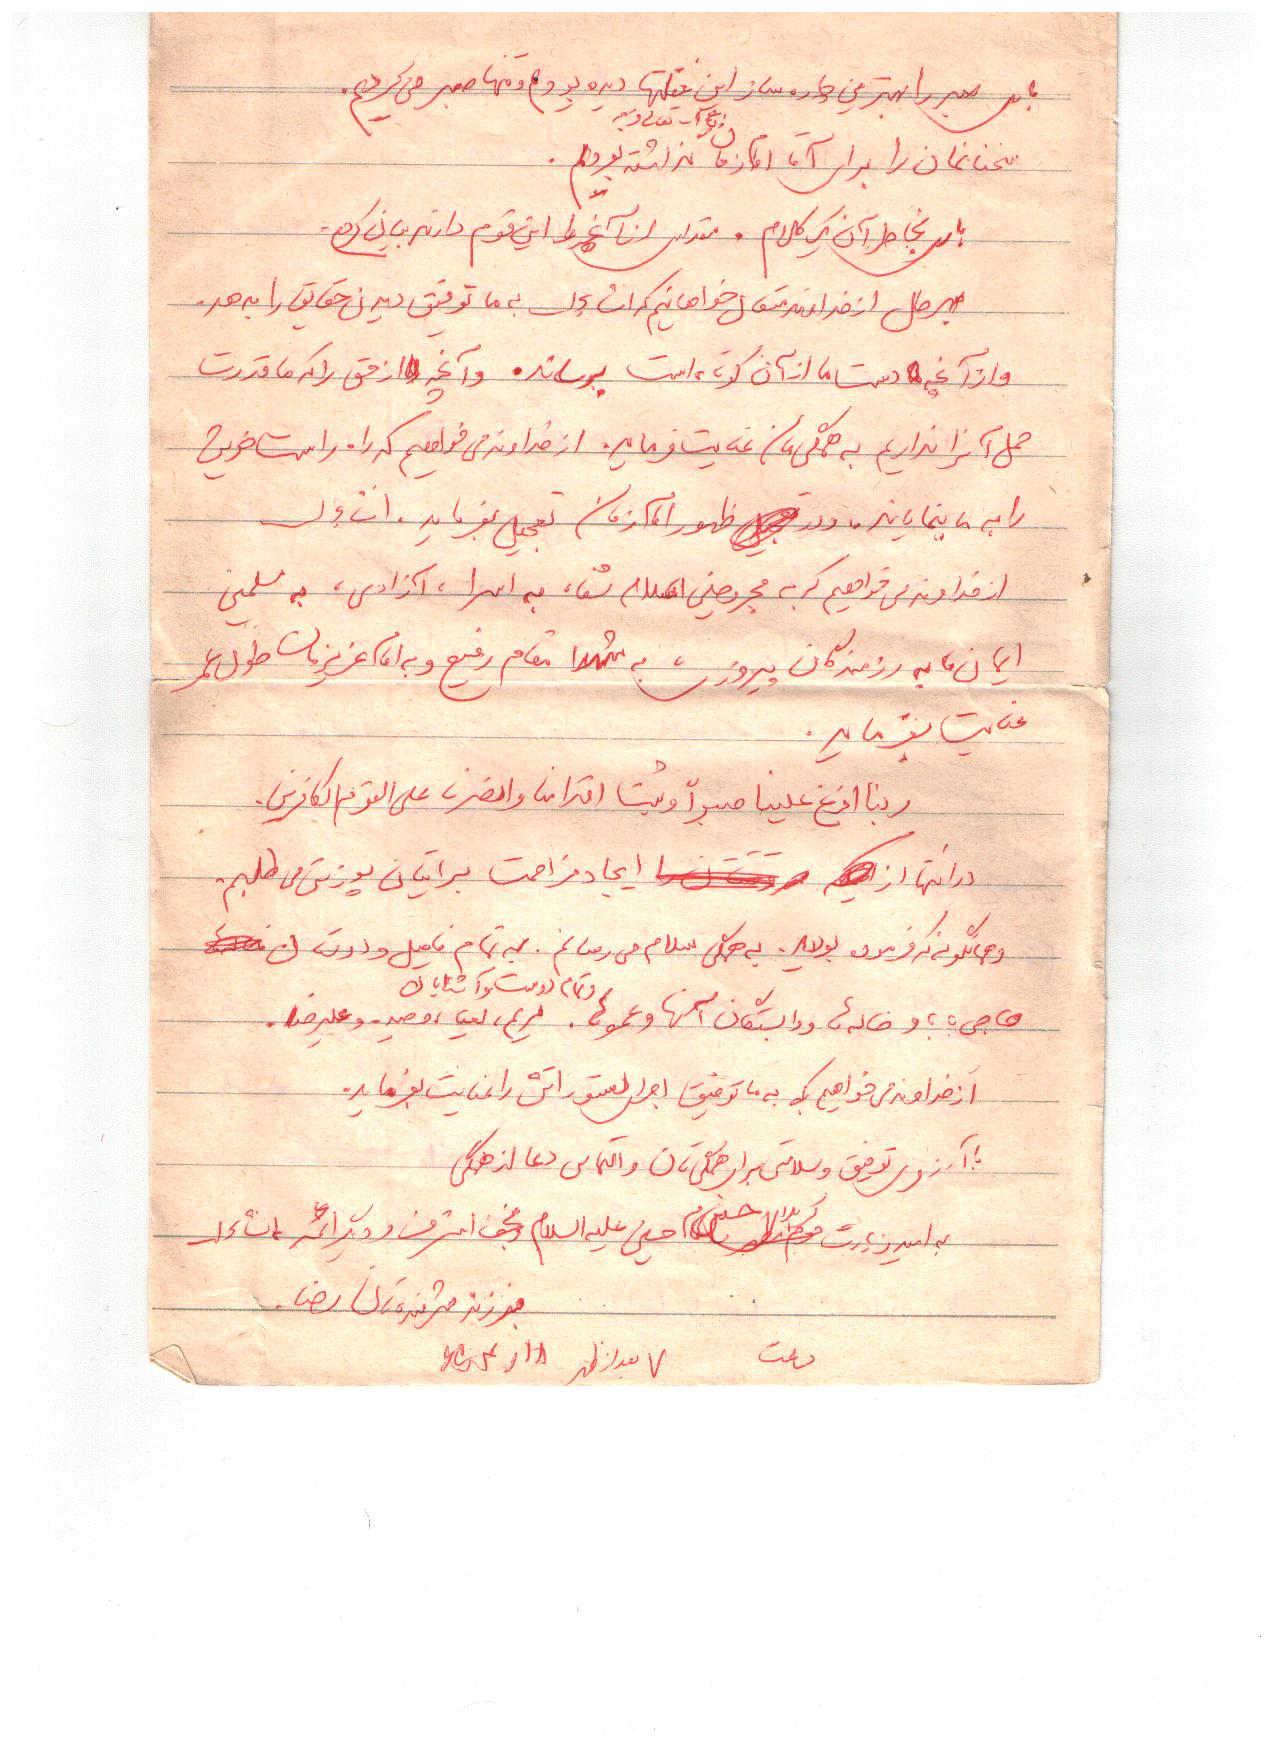 صبر را بهترین چاره ساز این دیده بودم و تنها صبر می کردیم.
سخنانمان را برای آقا امام زمان گذاشته بودیم.
کلام. مقداری از آنچه را این قوم دارند بیان کرد.
بهرحال از خداوند متعال خواهانیم که انشاءالله به ما توفیق دیدن حقایق را بدهد.
و از آنچه دست ما از آن کوتاه است برساند. و آنچه از حق را که ما قدرت
حمل آنرا نداریم به همگی مان عنایت فرماید. از خداوند می خواهیم که راه راست خویش
را به ما بنمایاند و در ظهور امام زمان تعجیل بفرماید. انشاءالله
از خداوند می خواهیم که به مجروحین اسلام شفا، به اسرا، آزادی، به مسلمین
ایمان ما به رزمندگان پیروزی، به شهدا مقام رفیع و به امام عزیزمان طول عمر
عنایت بفرماید.
ربنا افرغ علینا صبراً و ثبت اقدامنا وانصرنا علی القوم الکافرین.
در انتها از ایجاد مزاحمت برایتان پوزش می طلبم.
و همانگونه که فرموده بودید. به همگی سلام می رسانم. به تمام فامیل و دوستان
و تمام دوست و آشنایان
و خاله ها و وابستگان آنها و عموها. مریم، و علیرضا.
از خداوند می خواهیم که به ما توفیق اجرای دستوراتش را عنایت بفرماید.
با آرزوی توفیق و سلامتی برای همگی تان و التماس دعا از همگی
به امید زیارت کربلای حسین علیه السلام و نجف اشرف و دیگر ائمه انشاءالله
فرزند شرمنده تان رضا.
ساعت ۷ بعد از ظهر